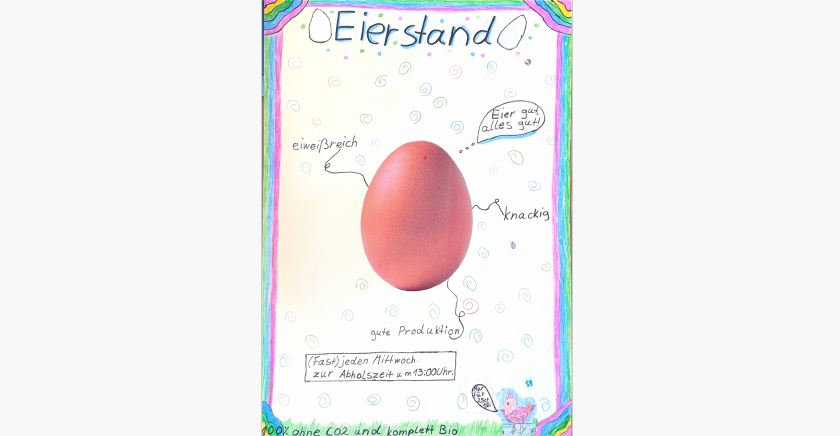 Eierstand
Eier gut,
alles gut!
eiweißreich
knackig
gute Produktion
(Fast) jeden Mittwoch
zur Abholszeit um 13:00 Uhr.
Nur
für
100% ohne CO2 und komplett Bio